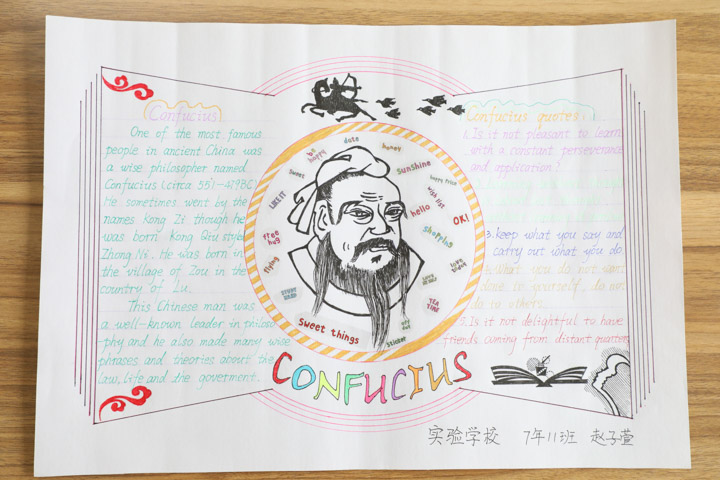 Confucius
One of the most famous
people in ancient China was
a wise philosopher named
Confucius (circa 551-479BC)
He sometimes went by the
names Kong Zi though he
was born Kong Qiu style
Zhong Ni. He was born in
the village of Zou in the
country of Lu.
This Chinese man was
a well-known leader in philoso
phy and he also made many wise
phrases and theories about the
law, Life and the goverment.
be happy
date
honey
sweet
sunshine
happy price
LIKE IT
wish list
hello
OK!
free hug
shopping
flying
love
TEA TIME
Sweet things
sticker
CONFUCIUS
Confucius quotes
1. Is it not pleasant to learn
with a constant perseverance
and application?
3. keep what you say and
carry out what you do.
What you do not want
done to yourself, do not
do to others.
5. Is it not delightful to have
friends coming from distant quarters
实验学校 7年11班 赵子萱